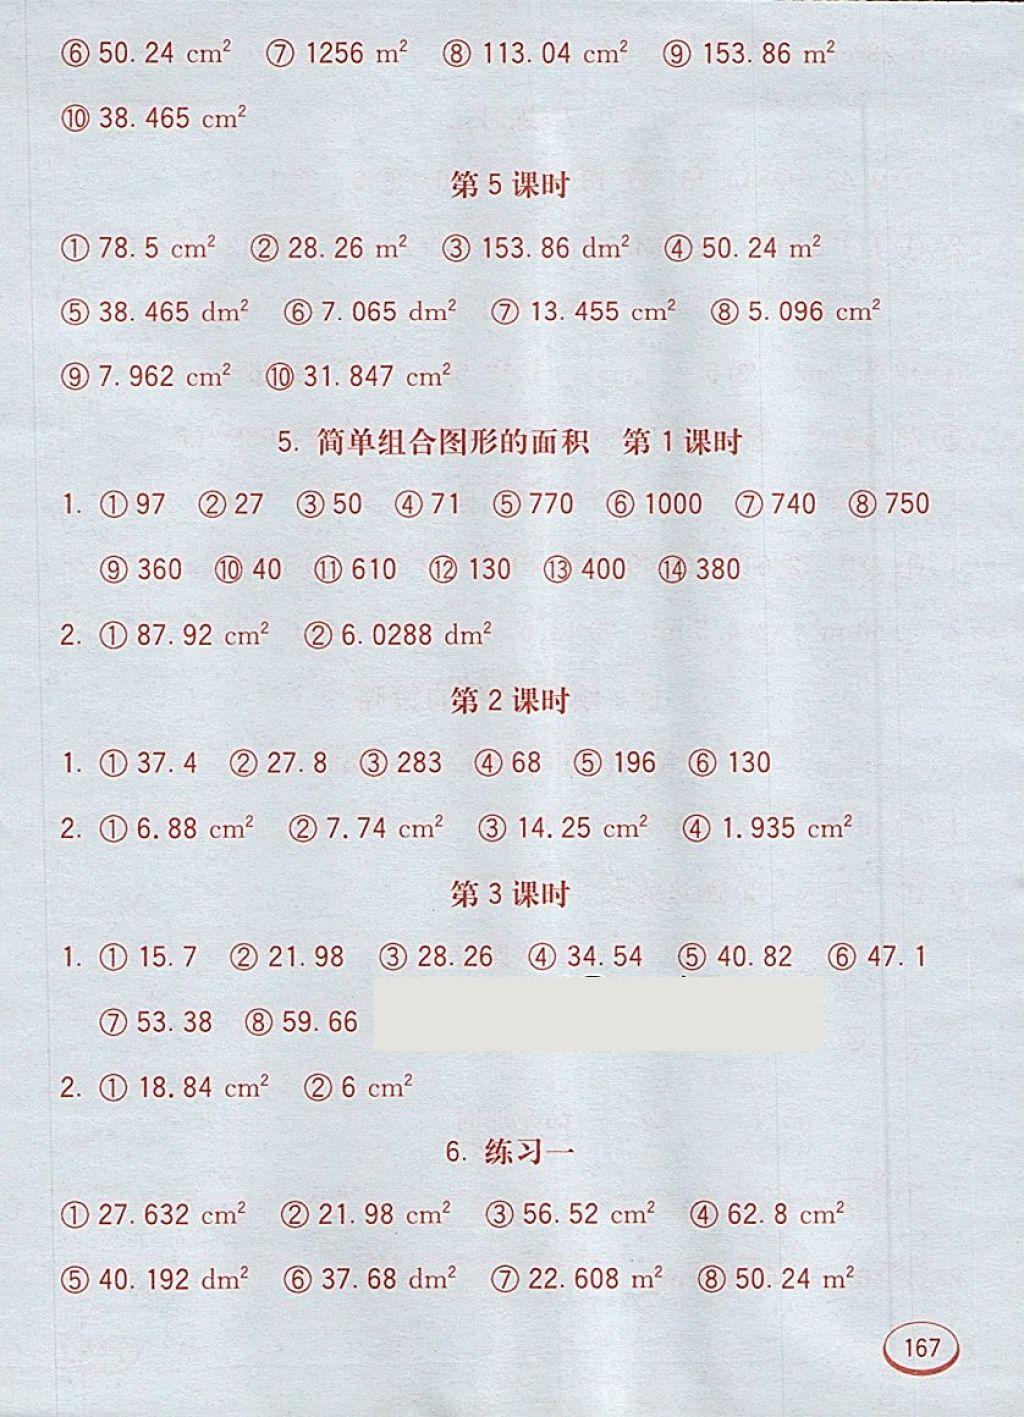 ⑥ 50.24 cm² ⑦ 1256 m² ⑧ 113.04 cm² ⑨ 153.86 m²
⑩ 38.465 cm²
第5课时
① 78.5 cm² ② 28.26 m² ③ 153.86 dm² ④ 50.24 m²
⑤ 38.465 dm² ⑥ 7.065 dm² ⑦ 13.455 cm² ⑧ 5.096 cm²
⑨ 7.962 cm² ⑩ 31.847 cm²
5. 简单组合图形的面积 第1课时
1. ① 97 ② 27 ③ 50 ④ 71 ⑤ 770 ⑥ 1000 ⑦ 740 ⑧ 750
⑨ 360 ⑩ 40 ⑪ 610 ⑫ 130 ⑬ 400 ⑭ 380
2. ① 87.92 cm² ② 6.0288 dm²
第2课时
1. ① 37.4 ② 27.8 ③ 283 ④ 68 ⑤ 196 ⑥ 130
2. ① 6.88 cm² ② 7.74 cm² ③ 14.25 cm² ④ 1.935 cm²
第3课时
1. ① 15.7 ② 21.98 ③ 28.26 ④ 34.54 ⑤ 40.82 ⑥ 47.1
⑦ 53.38 ⑧ 59.66
2. ① 18.84 cm² ② 6 cm²
6. 练习一
① 27.632 cm² ② 21.98 cm² ③ 56.52 cm² ④ 62.8 cm²
⑤ 40.192 dm² ⑥ 37.68 dm² ⑦ 22.608 m² ⑧ 50.24 m²
167